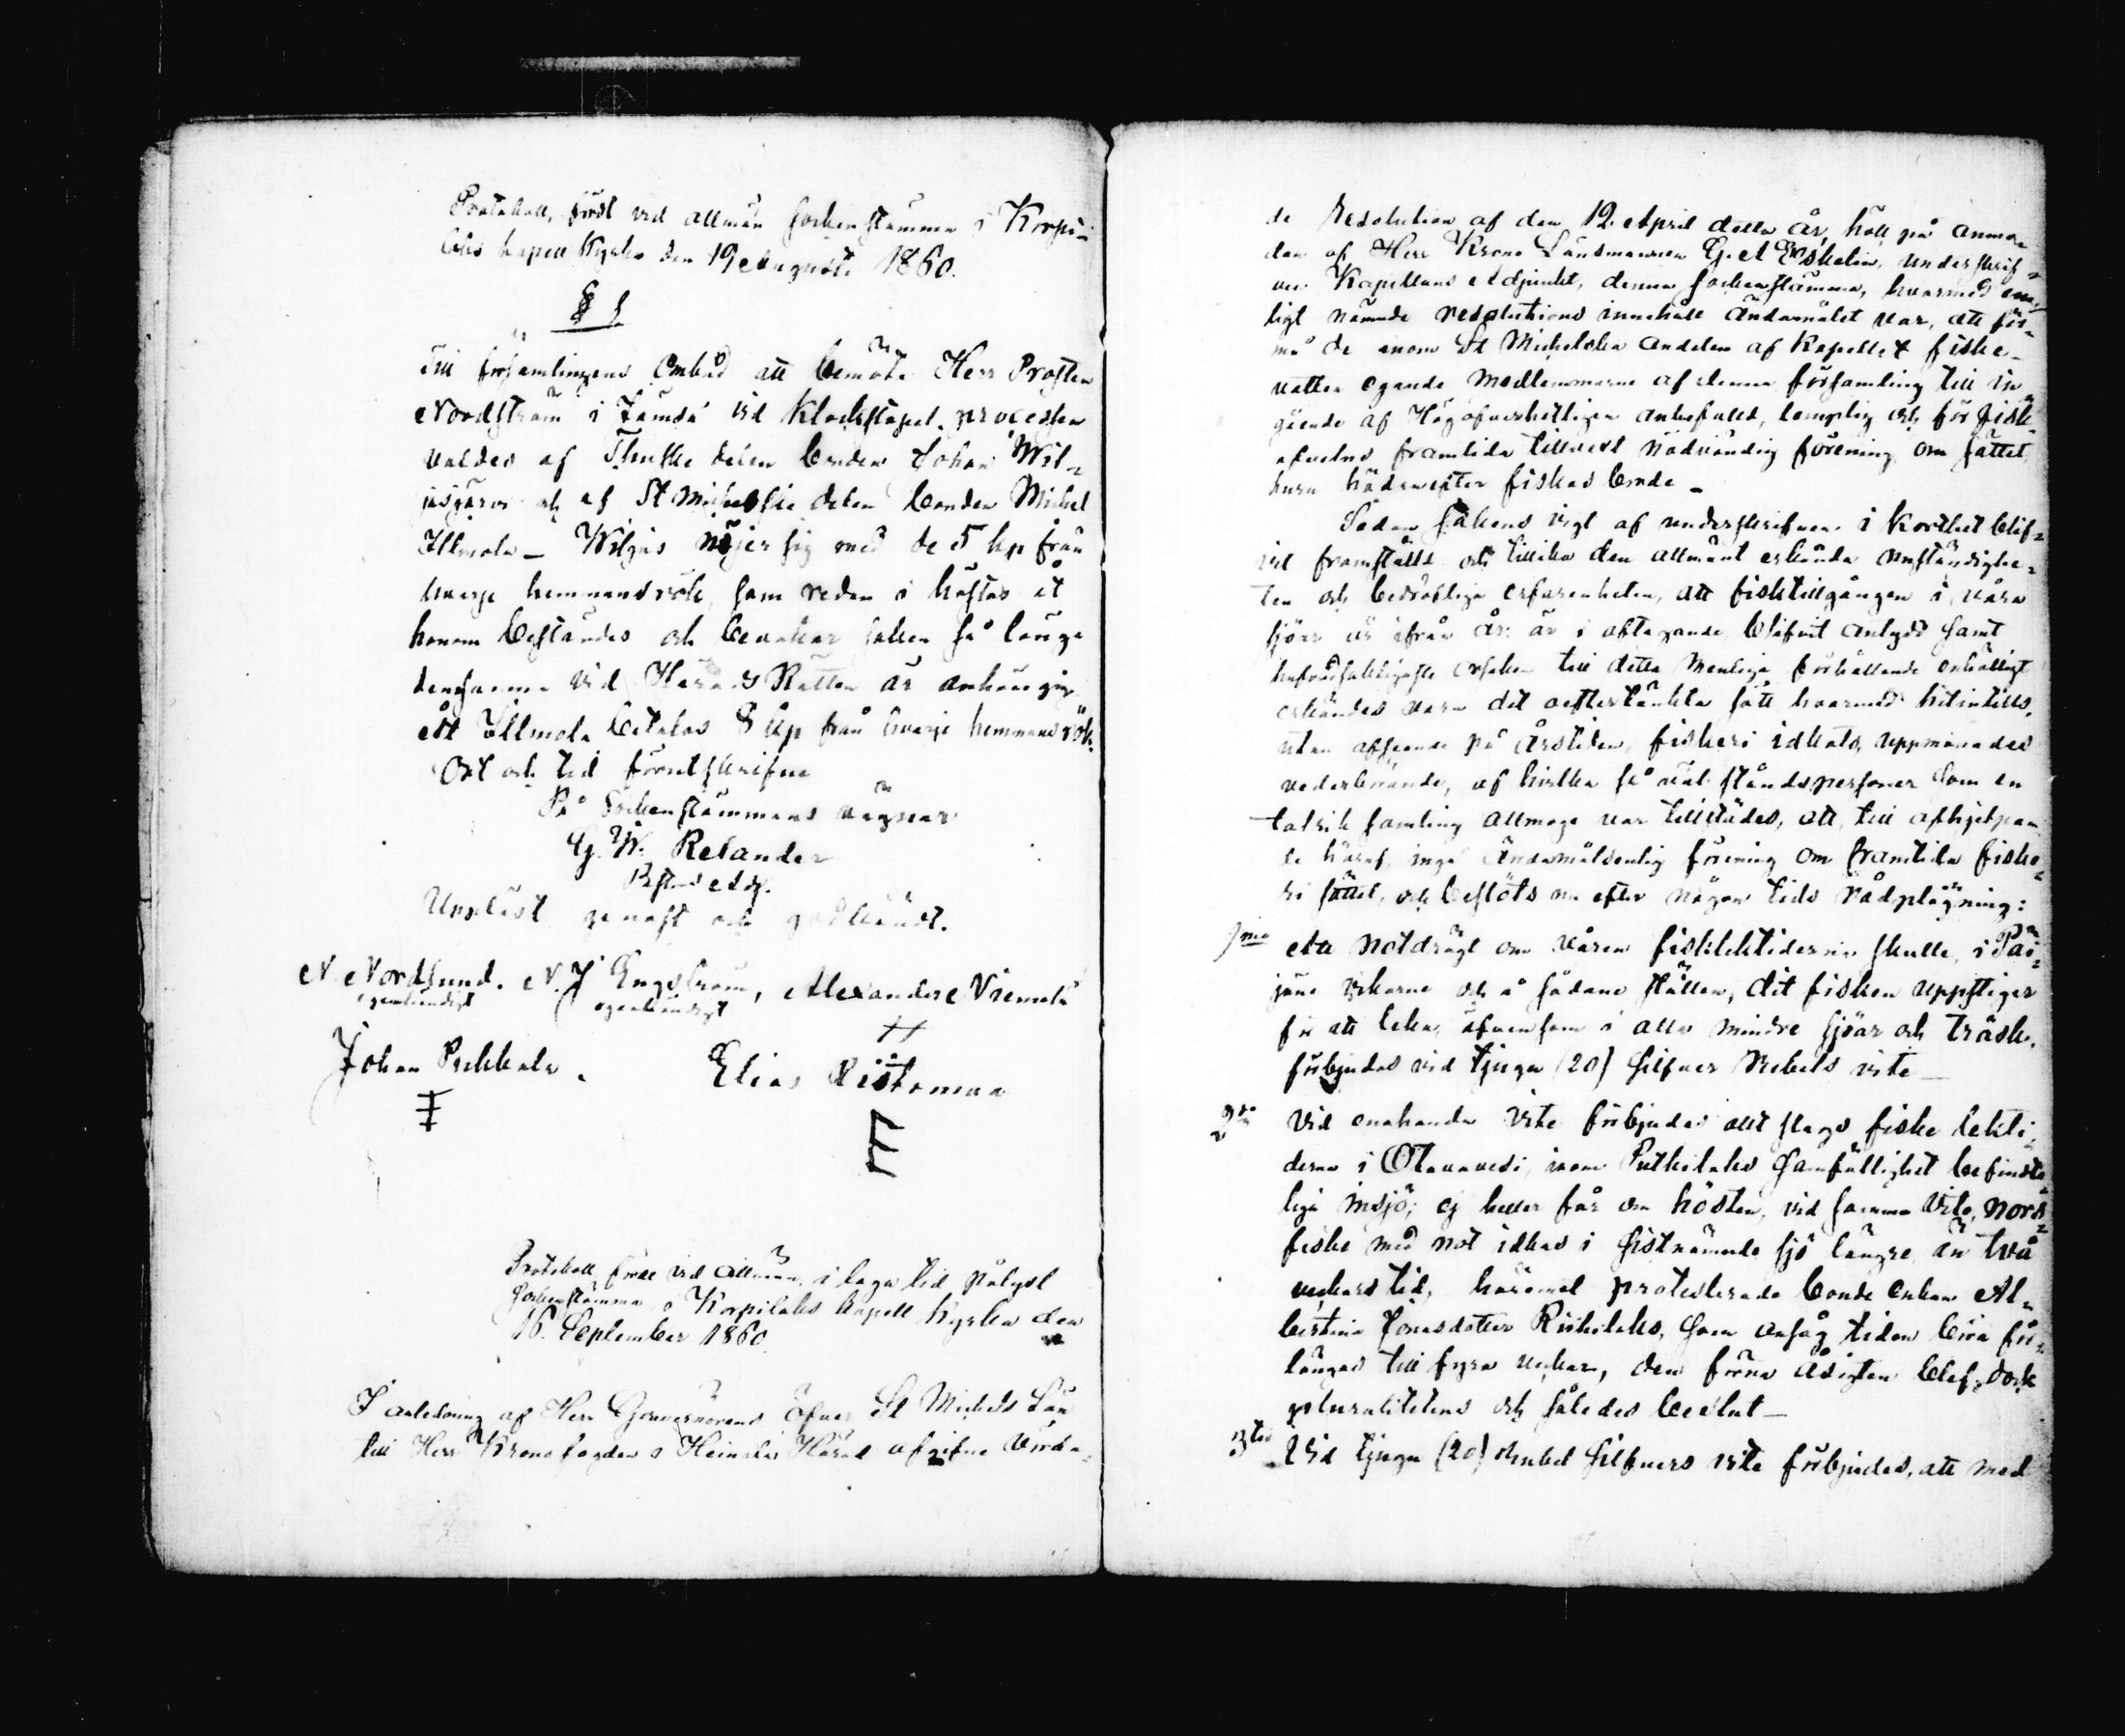 Protokoll, fördt vid allmän sockenstämma i Korpi-
lahs kapell Kyrka den 19 Augusti 1860.
§ 1
Till församlingens Ombud att bemöta Herr Prosten
Nordström i Jämsä vid Klockstapel processen
valdes af Thusthe delen bonden Johan Wil-
jasjärvi och af St Michelske delen bonden Michel
Illmola – Wiljas nöjer sig med de 5 kop från
hvarje hemmansrök, som redan i höstas åt
honom bestämdes och bevakar saken så länge
densamma vid Härads Rätten är anhängig
åt Illmola betalas 8 kop från hvarje hemmansrök.
Ort och tid förutskrifne
På Sockenstämmans vägnar
G. W. Relander
Past. Adj.
Uppläst genast och godkändt.
N. Nordlund. N. J Engström, Alexander Niemelä
egenhändigt egenhändigt
Johan Pekkala. Elias Ristomaa
Protokoll fördt vid allmän, i laga tid pålyst
sockenstämma i Korpilahs kapell Kyrka den
16 September 1860.
I anledning af Herr Gouvernörens öfver St Michels Län
till Herr Kronofogden i Heinola Härad afgifne vörda-
de Resolution af den 12 April detta år, höll på anmo-
dan af Herr Krono Länsmannen G. A Eskelin, underskrif-
ven Kapellans Adjunkt, denna sockenstämma, hvarmed en-
ligt nämnde resolutions innehåll ändamålet var, att för-
må de inom St Michelska andelen af Kapellet fiske-
vatten egande medlemmarne af denna församling till in-
gående af Högöfverhetligen anbefalld, lämplig och för fisk-
afvelns framtida tillvext nödvändig förening om sättet
huru hädanefter fiskas borde –
Sedan sakens vigt af underskrifven i korthet blif-
vit framställd och tillika den allmänt erkända omständighe-
ten och bedröfliga erfarenheten, att fisktillgången i våra
sjöar år ifrån år är i aftagande blifvit antydd samt
hufvudsakligaste orsaken till detta menliga förhållande enhälligt
erkändes vara det oeftertänkta sätt hvarmed hitintills,
utan afseende på årstiden, fiskeri idkats, uppmanades
vederbörande, af hvilka så väl ståndspersoner som en
talrik samling allmoge var tillstädes, att, till afhjelpan-
de häraf, ingå ändamålsenlig förening om framtida fiske-
ri sättet, och beslöts nu efter någon tids rådplägning:
1mo Att notdrägt om våren fisklektiderna skulle, i Päi-
jäne vikarne och å sådane ställen, dit fisken uppstiger
för att leka, äfvensom i alla mindre sjöar och träsk,
förbjudas vid tjugu (20) silfver Rubels vite –
2do Vid enahanda vite förbjudes allt slags fiske lekti-
derna i Otavavesi, inom Putkilahs samfällighet befint-
liga insjö; ej heller får om hösten, vid samma vite, nors-
fiske med not idkas i sistnämnde sjö längre än två
veckors tid, häremot protesterade bonde enkan Al-
bertina Jonasdotter Riihilahs, som ansåg tiden böra för-
längas till fyra veckor, den förra åsigten blef dock
pluralitetens och således beslut –
3tio Vid tjugu (20) Rubel silfvers vite förbjudes, att med